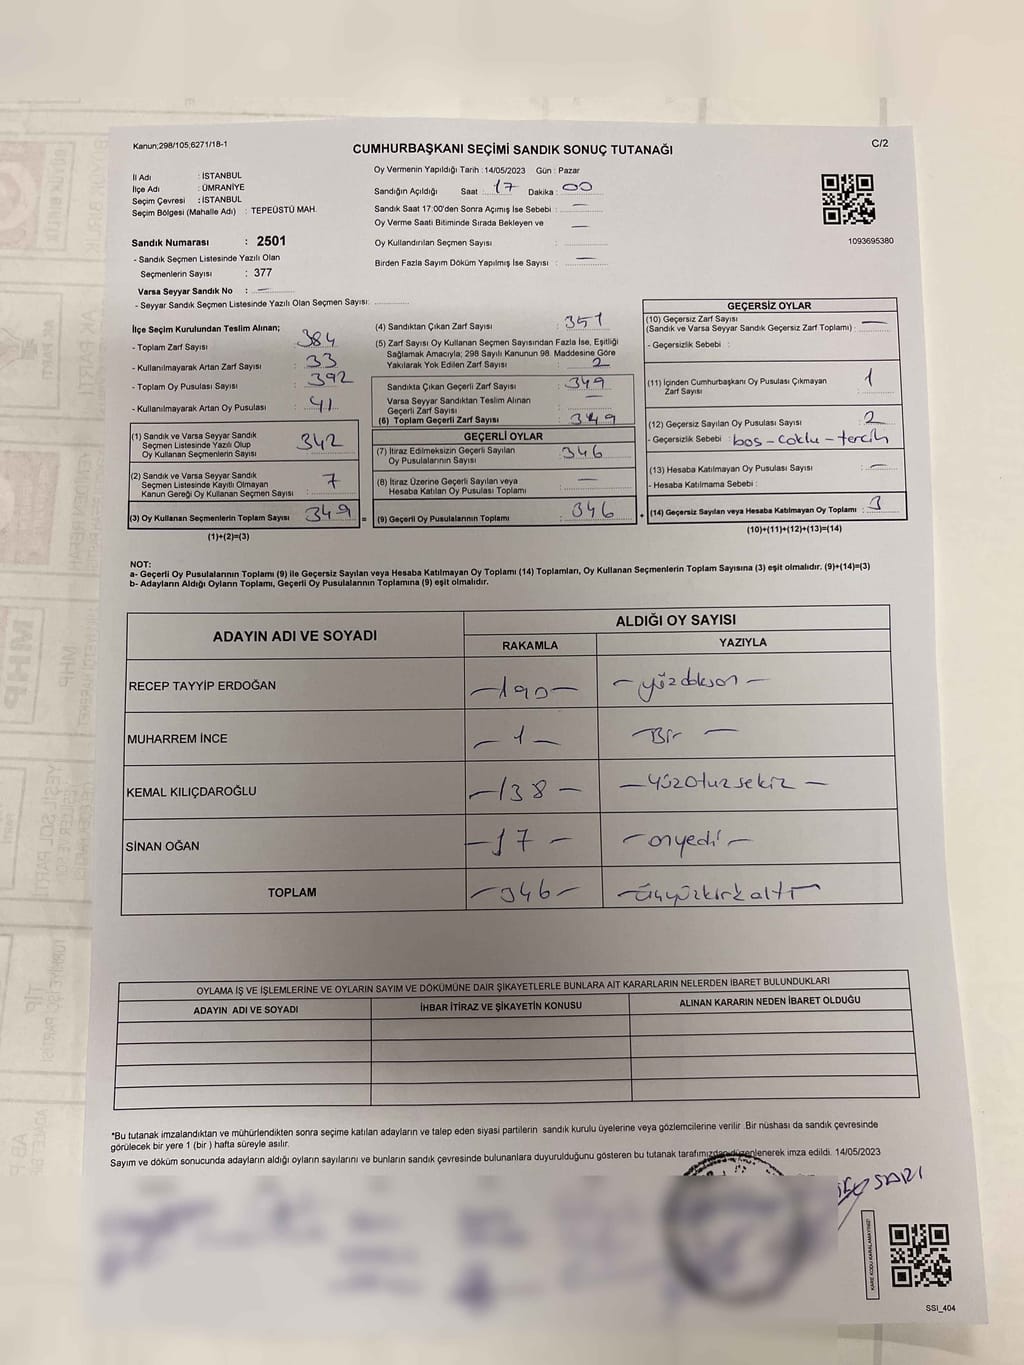 Kanun;298/105;6271/18-1
CUMHURBAŞKANI SEÇİMİ SANDIK SONUÇ TUTANAĞI
C/2
Oy Vermenin Yapıldığı Tarih : 14/05/2023 Gün : Pazar
İl Adı : İSTANBUL
İlçe Adı : ÜMRANİYE
Seçim Çevresi : İSTANBUL
Seçim Bölgesi (Mahalle Adı) : TEPEÜSTÜ MAH.
Sandığın Açıldığı Saat : 17 Dakika : 00
Sandık Saat 17:00'den Sonra Açımış İse Sebebi : —
Oy Verme Saati Bitiminde Sırada Bekleyen ve —
Oy Kullandırılan Seçmen Sayısı :
Birden Fazla Sayım Döküm Yapılmış İse Sayısı : —
1093695380
Sandık Numarası : 2501
- Sandık Seçmen Listesinde Yazılı Olan
Seçmenlerin Sayısı : 377
Varsa Seyyar Sandık No : —
- Seyyar Sandık Seçmen Listesinde Yazılı Olan Seçmen Sayısı:
İlçe Seçim Kurulundan Teslim Alınan;
- Toplam Zarf Sayısı : 384
- Kullanılmayarak Artan Zarf Sayısı : 33
- Toplam Oy Pusulası Sayısı : 392
- Kullanılmayarak Artan Oy Pusulası : 41
(1) Sandık ve Varsa Seyyar Sandık
Seçmen Listesinde Yazılı Olup
Oy Kullanan Seçmenlerin Sayısı : 342
(2) Sandık ve Varsa Seyyar Sandık
Seçmen Listesinde Kayıtlı Olmayan
Kanun Gereği Oy Kullanan Seçmen Sayısı : 7
(3) Oy Kullanan Seçmenlerin Toplam Sayısı : 349 =
(1)+(2)=(3)
(4) Sandıktan Çıkan Zarf Sayısı : 351
(5) Zarf Sayısı Oy Kullanan Seçmen Sayısından Fazla İse, Eşitliği
Sağlamak Amacıyla; 298 Sayılı Kanunun 98. Maddesine Göre
Yakılarak Yok Edilen Zarf Sayısı : 2
Sandıkta Çıkan Geçerli Zarf Sayısı : 349
Varsa Seyyar Sandıktan Teslim Alınan
Geçerli Zarf Sayısı : —
(6) Toplam Geçerli Zarf Sayısı : 349
GEÇERLİ OYLAR
(7) İtiraz Edilmeksizin Geçerli Sayılan
Oy Pusulalarının Sayısı : 346
(8) İtiraz Üzerine Geçerli Sayılan veya
Hesaba Katılan Oy Pusulası Toplamı : —
(9) Geçerli Oy Pusulalarının Toplamı : 346 +
GEÇERSİZ OYLAR
(10) Geçersiz Zarf Sayısı
(Sandık ve Varsa Seyyar Sandık Geçersiz Zarf Toplamı) : —
- Geçersizlik Sebebi :
(11) İçinden Cumhurbaşkanı Oy Pusulası Çıkmayan
Zarf Sayısı : 1
(12) Geçersiz Sayılan Oy Pusulası Sayısı : 2
- Geçersizlik Sebebi : bos-coklu-tercih
(13) Hesaba Katılmayan Oy Pusulası Sayısı : —
- Hesaba Katılmama Sebebi :
(14) Geçersiz Sayılan veya Hesaba Katılmayan Oy Toplamı : 3
(10)+(11)+(12)+(13)=(14)
NOT:
a- Geçerli Oy Pusulalarının Toplamı (9) ile Geçersiz Sayılan veya Hesaba Katılmayan Oy Toplamı (14) Toplamları, Oy Kullanan Seçmenlerin Toplam Sayısına (3) eşit olmalıdır. (9)+(14)=(3)
b- Adayların Aldığı Oyların Toplamı, Geçerli Oy Pusulalarının Toplamına (9) eşit olmalıdır.
ADAYIN ADI VE SOYADI
ALDIĞI OY SAYISI
RAKAMLA YAZIYLA
RECEP TAYYİP ERDOĞAN —190— — yüzdoksan —
MUHARREM İNCE — 1 — — Bir —
KEMAL KILIÇDAROĞLU —138 — — yüzotuzsekiz —
SİNAN OĞAN —17 — — onyedi —
TOPLAM —346— — üçyüzkırkaltı —
OYLAMA İŞ VE İŞLEMLERİNE VE OYLARIN SAYIM VE DÖKÜMÜNE DAİR ŞİKAYETLERLE BUNLARA AİT KARARLARIN NELERDEN İBARET BULUNDUKLARI
ADAYIN ADI VE SOYADI İHBAR İTİRAZ VE ŞİKAYETİN KONUSU ALINAN KARARIN NEDEN İBARET OLDUĞU
*Bu tutanak imzalandıktan ve mühürlendikten sonra seçime katılan adayların ve talep eden siyasi partilerin sandık kurulu üyelerine veya gözlemcilerine verilir .Bir nüshası da sandık çevresinde
görülecek bir yere 1 (bir ) hafta süreyle asılır.
Sayım ve döküm sonucunda adayların aldığı oyların sayılarını ve bunların sandık çevresinde bulunanlara duyurulduğunu gösteren bu tutanak tarafımızdan düzenlenerek imza edildi. 14/05/2023
SARI
KARE KODU KARALAMAYINIZ!
SSI_404